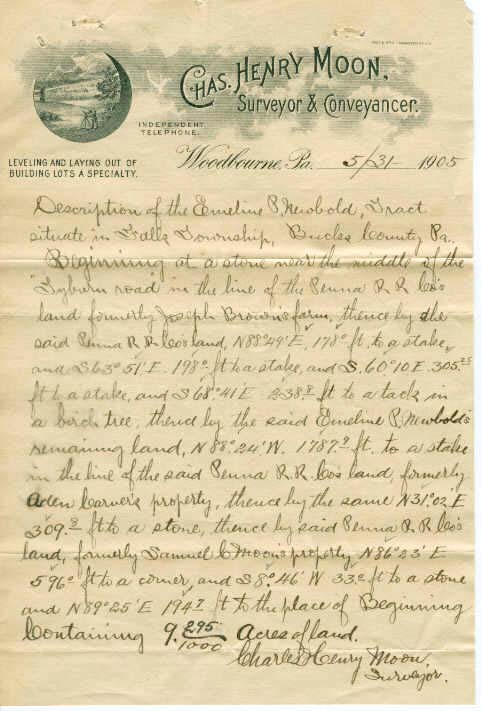 CHAS. HENRY MOON,
Surveyor & Conveyancer.
INDEPENDENT
TELEPHONE.
LEVELING AND LAYING OUT OF
BUILDING LOTS A SPECIALTY.
Woodbourne, Pa. 5/31 1905
Description of the Emeline P. Newbold, Tract
situate in Falls Township, Bucks County Pa.
Beginning at a stone near the middle of the
"Tyburn road" in the line of the Penna R. R. Co's
land formerly Joseph Brown's farm, thence by the
said Penna R. R. Co's land, N 88° 49' E, 178⁰ ft. to a stake,
and S 63° 51' E. 198⁰ ft to a stake, and S. 60° 10 E. 305.²⁵
ft to a stake, and S 68° 41' E 238⁸ ft to a tack in
a birch tree, thence by the said Emeline P. Newbold's
remaining land, N 88° 24' W. 1787⁹ ft. to a stake
in the line of the said Penna R. R. Co's land, formerly
Aden Carver's property, thence by the same N 31° 02' E
309.² ft to a stone, thence by said Penna R. R. Co's
land, formerly Samuel C Moon's property N 86° 23' E
596⁰ ft to a corner, and S 8° 46' W 33⁰ ft to a stone
and N 89° 25' E 194⁷ ft to the place of Beginning
Containing 9. 295/1000 Acres of land.
Charles Henry Moon,
Surveyor.